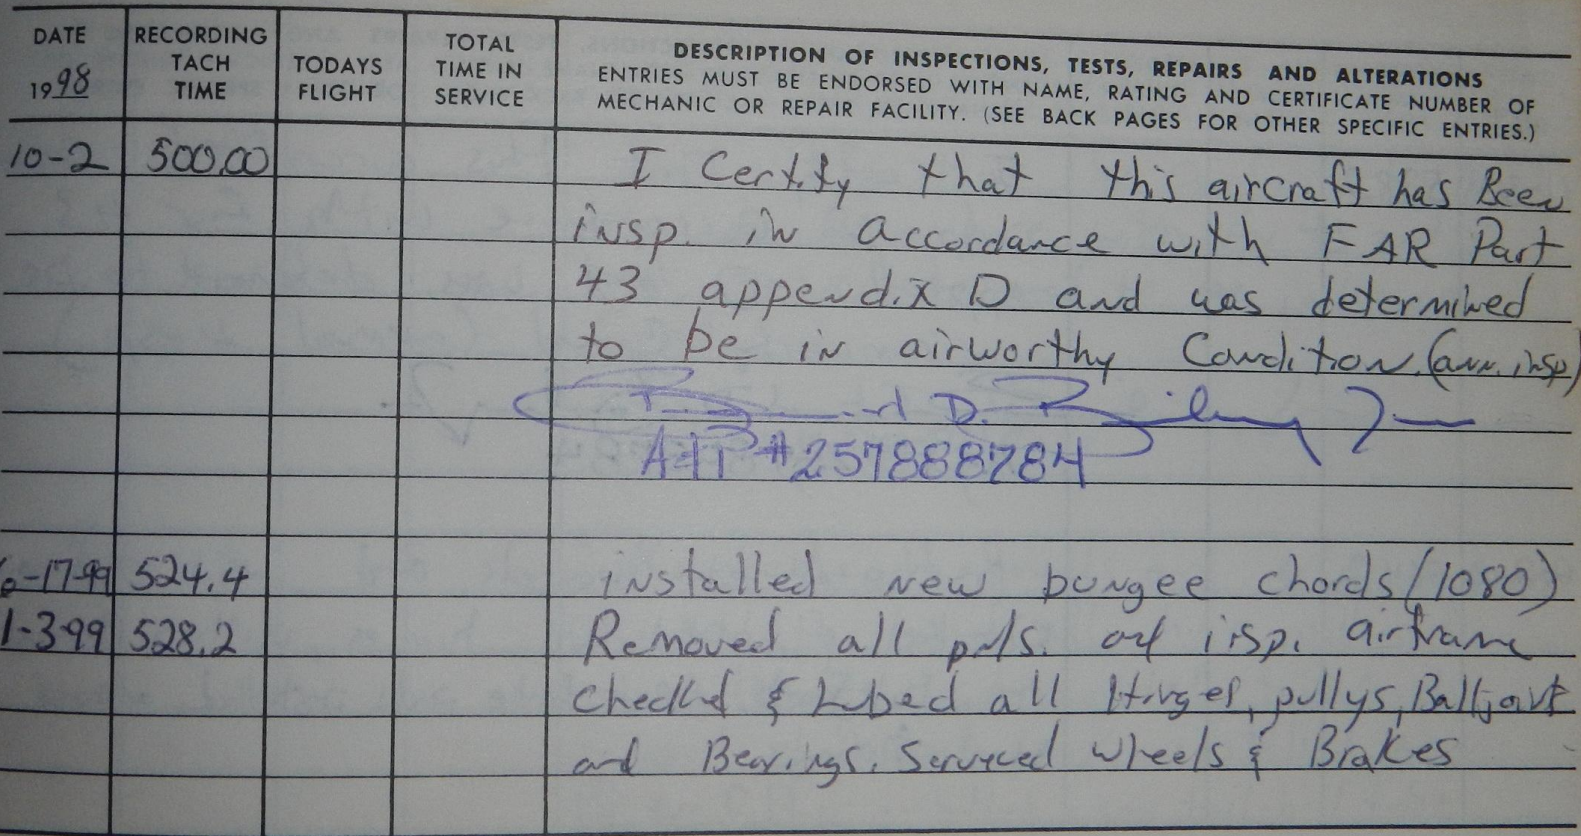 DATE
1998
RECORDING
TACH
TIME
TODAYS
FLIGHT
TOTAL
TIME IN
SERVICE
DESCRIPTION OF INSPECTIONS, TESTS, REPAIRS AND ALTERATIONS
ENTRIES MUST BE ENDORSED WITH NAME, RATING AND CERTIFICATE NUMBER OF
MECHANIC OR REPAIR FACILITY. (SEE BACK PAGES FOR OTHER SPECIFIC ENTRIES.)
10-2 500.00 I Certify that this aircraft has Been
insp. in accordance with FAR Part
43 appendix D and was determined
to be in airworthy Condition. (ann. insp)
D.
A+P #257888784
-17-99 524.4 installed new bungee chords (1080)
1-3-99 528.2 Removed all pnls. and insp. airframe
Checked & Lubed all Hinges, pullys, Ball joint
and Bearings. Serviced wheels & Brakes